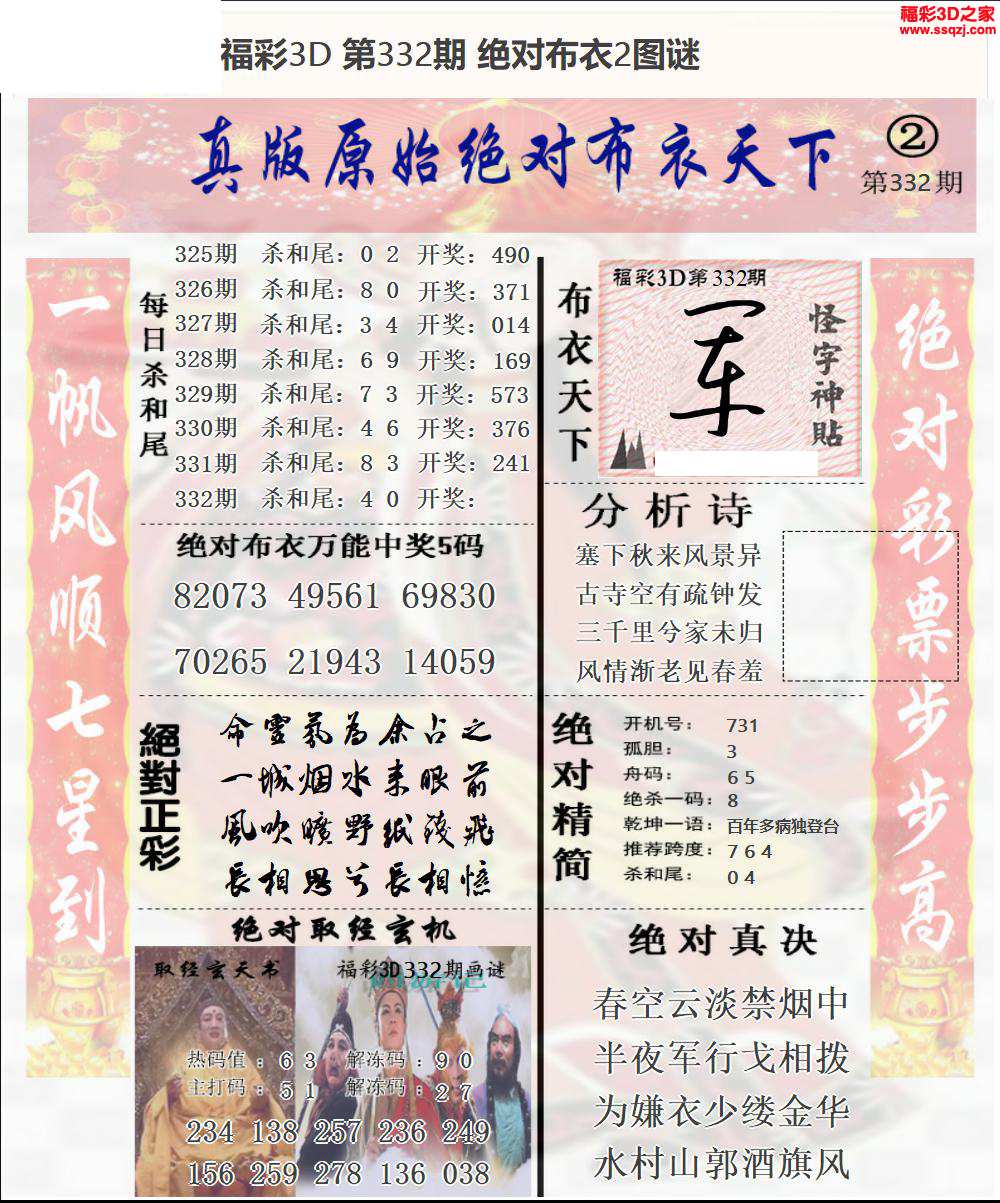 福彩3D之家
www.ssqzj.com
福彩3D 第332期 绝对布衣2图谜
真版原始绝对布衣天下
②
第332期
一帆风顺七星到
每日杀和尾
325期 杀和尾：0 2 开奖：490
326期 杀和尾：8 0 开奖：371
327期 杀和尾：3 4 开奖：014
328期 杀和尾：6 9 开奖：169
329期 杀和尾：7 3 开奖：573
330期 杀和尾：4 6 开奖：376
331期 杀和尾：8 3 开奖：241
332期 杀和尾：4 0 开奖：
绝对布衣万能中奖5码
82073 49561 69830
70265 21943 14059
絕對正彩
命靈氣為余占之
一城烟水来眼前
風吹曠野紙錢飛
長相思兮長相憶
绝对取经玄机
取经玄天书
福彩3D332期画谜
热码值：6 3 解冻码：9 0
主打码：5 1 解冻码：2 7
234 138 257 236 249
156 259 278 136 038
布衣天下
福彩3D第332期
怪字神貼
分析诗
塞下秋来风景异
古寺空有疏钟发
三千里兮家未归
风情渐老见春羞
绝对精简
开机号：731
孤胆：3
舟码：6 5
绝杀一码：8
乾坤一语：百年多病独登台
推荐跨度：7 6 4
杀和尾：0 4
绝对真决
春空云淡禁烟中
半夜军行戈相拨
为嫌衣少缕金华
水村山郭酒旗风
绝对彩票步步高